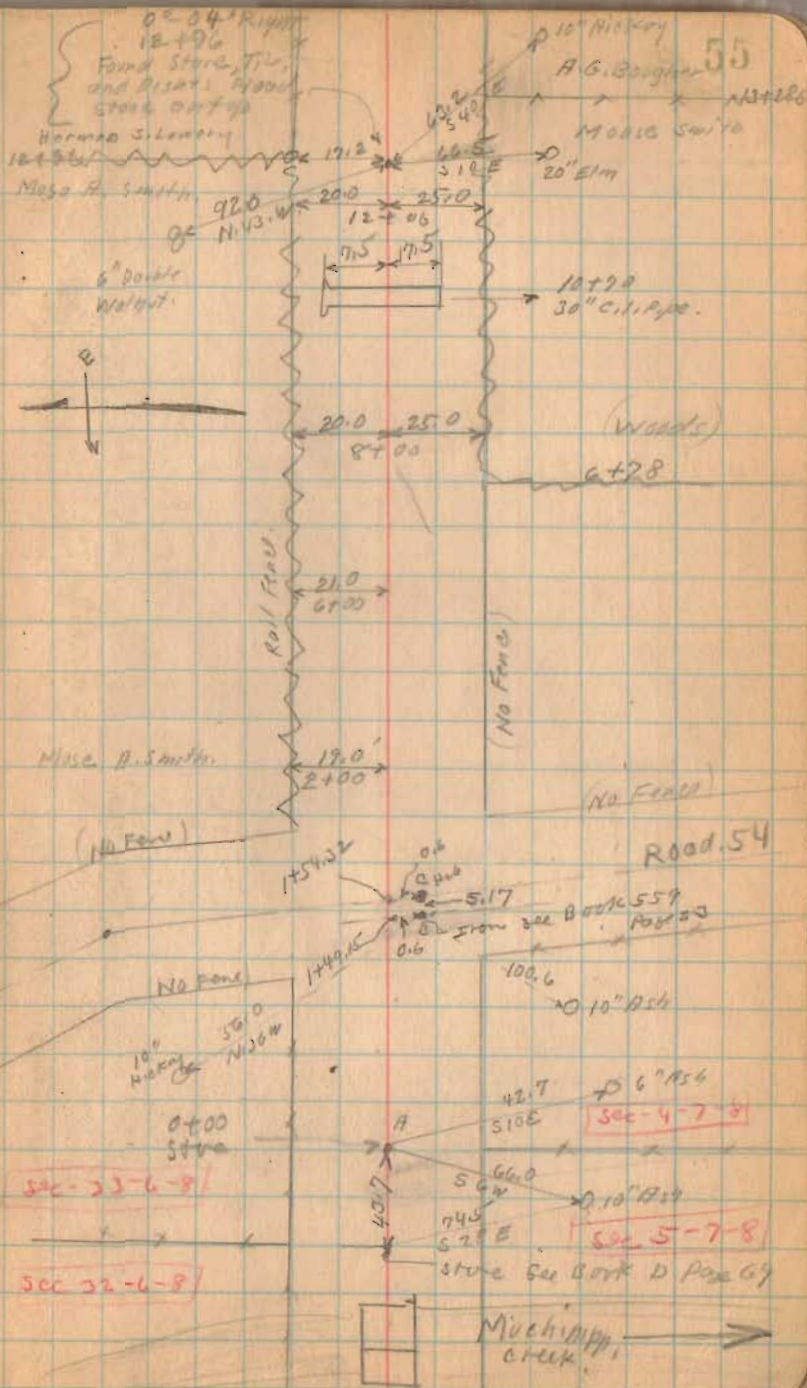 55
0°-04' Right
12+96
Found Stone, Tile,
and Stone on top
Herman S. Lowery
10" Hickory
A.G. Bougher
13+286
Mose Smith
63.2
S 40
17.2
66.5
S 10 E
20" Elm
Mose A. Smith.
92.0
N. 43. W
20.0 25.0
12+06
6" Double
Walnut.
7.5 7.5
10+70
30" C.I. Pipe.
E
20.0 25.0
8+00
(Woods)
6+28
Rail Fence.
21.0
6+00
(No Fence)
Mose A. Smith.
19.0'
2+00
(No Fence)
(No Fence)
Road. 54
1+54.32
0.6
5.17
Iron See Book 559
Page 53
0.6
1+49.15
No Fence
100.6
10" Ash
10"
Hickory
56.0
N 36 W
42.7
S 10 E
6" Ash
Sec-4-7-8
0+00
Stone
A
Sec-33-6-8
43.7
66.0
S 6 W
10" Ash
74.5
S 2° E
Sec 5-7-8
Sec 32-6-8
Stone See Book D Page 69
Muchinippi
Creek.